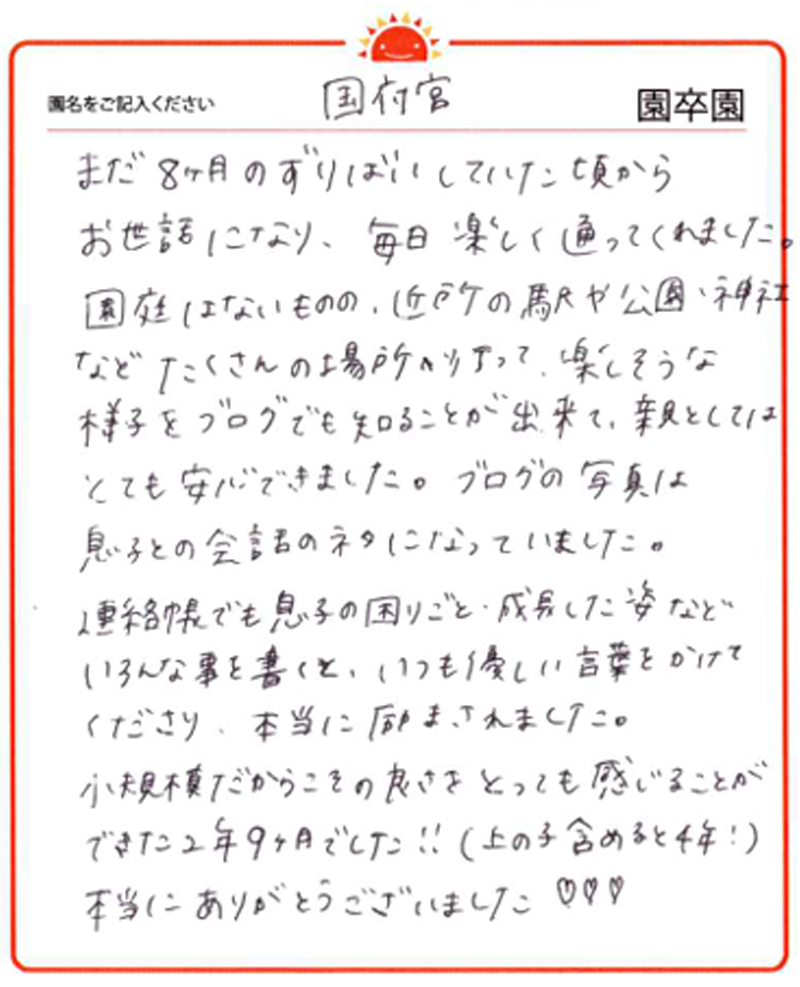 園名をご記入ください 国府宮 園卒園
まだ8ヶ月のずりばいしていた頃から
お世話になり、毎日楽しく通ってくれました。
園庭はないものの、近所の駅や公園・神社
などたくさんの場所へ行って、楽しそうな
様子をブログでも知ることが出来て、親としては
とても安心できました。ブログの写真は
息子との会話のネタになっていました。
連絡帳でも息子の困りごと・成長した姿など
いろんな事を書くと、いつも優しい言葉をかけて
くださり、本当に励まされました。
小規模だからこその良さをとっても感じることが
できた2年9ヶ月でした!!(上の子含めると4年!)
本当にありがとうございました♡♡♡